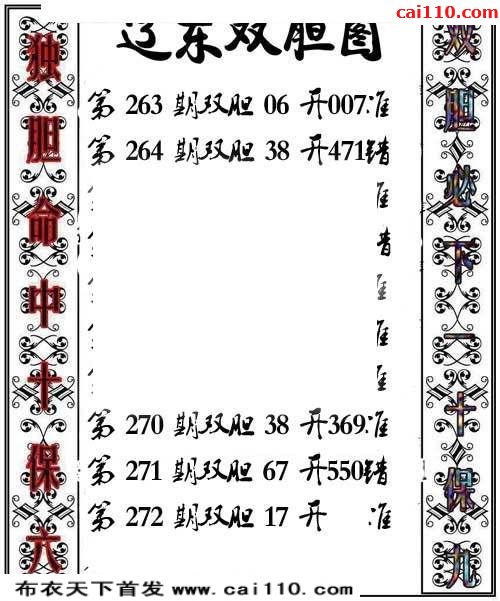 cai110.com
辽东双胆图
独胆命中十保六
第 263 期双胆 06 开007准
第 264 期双胆 38 开471错
准
错
准
准
准
第 270 期双胆 38 开369准
第 271 期双胆 67 开550错
第 272 期双胆 17 开 准
双胆必下一十保九
布衣天下首发 www.cai110.com